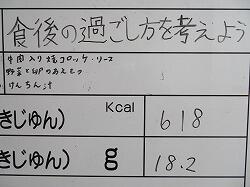 食後の過ごし方を考えよう
牛肉入り焼コロッケ・ソース
野菜と卵のあえもの
けんちん汁
きじゅん) Kcal 618
きじゅん) g 18.2